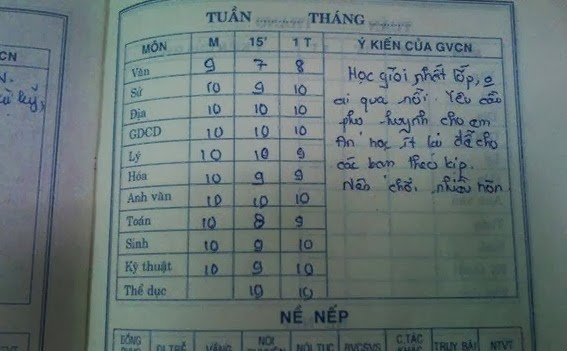 TUẦN THÁNG
CN
MÔN M 15' 1 T Ý KIẾN CỦA GVCN
Văn 9 7 8
Sử 10 9 10
Địa 10 10 10
GDCD 10 10 10
Lý 10 10 9
Hóa 10 9 9
Anh văn 10 10 10
Toán 10 8 9
Sinh 10 9 10
Kỹ thuật 10 9 10
Thể dục 10 10
Học giỏi nhất lớp, o
ai qua nổi. Yêu cầu
phụ huynh cho em
ăn học ít lại để cho
các bạn theo kịp.
Nên chơi nhiều hơn.
NỀ NẾP
ĐỒNG ĐI TRỄ VẮNG NÓI NÓI TỤC C.TÁC TRUY BÀI NTVT